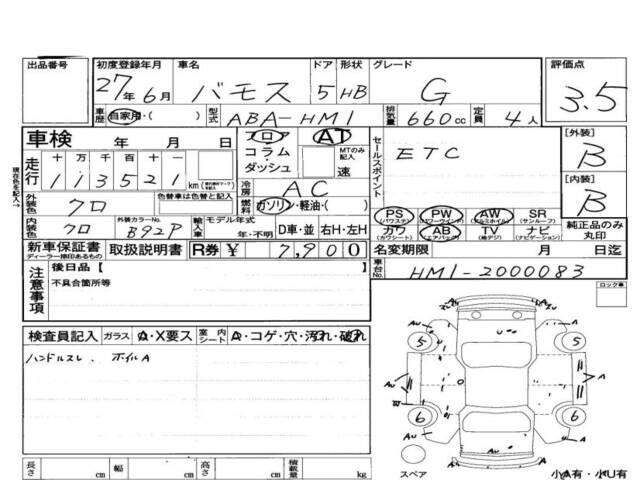 出品番号 初度登録年月 車名 ドア 形状 グレード 評価点
27年6月 バモス 5 HB G 3.5
車歴 自家用・( ) 型式 ABA-HM1 排気量 660cc 定員 4人
車検 年 月 日 フロア AT セールスポイント ETC [外装] B
走行 十 万 千 百 十 一 コラム・ダッシュ MTのみ記入 速
113521 km 冷房 AC [内装] B
外装色 クロ 色替車は色替と記入 燃料 ガソリン・軽油・( )
PS (パワステ) PW (パワーウインド) AW (アルミホイル) SR (サンルーフ)
内装色 クロ 外装カラーNo. B92P 輸入車 モデル年式 年・不明 D車・並 右H・左H
カワ (カワシート) AB (エアバック) TV (地デジ) ナビ (ナビゲーション) 純正品のみ丸印
新車保証書 ディーラー捺印あるもの 取扱説明書 R券 ¥ 7,900 名変期限 月 日迄
注意事項 後日品【 車台No. HM1-2000083
不具合箇所等
ロック車
現在色を記入→
検査員記入 ガラス A・X要ス 室内シート A・コゲ・穴・汚れ・破れ
ハンドルスレ、ホイルA
5 5
6 6
A
AU
長さ cm 幅 cm 高さ cm 積載量 kg
スペア 小A有・小U有